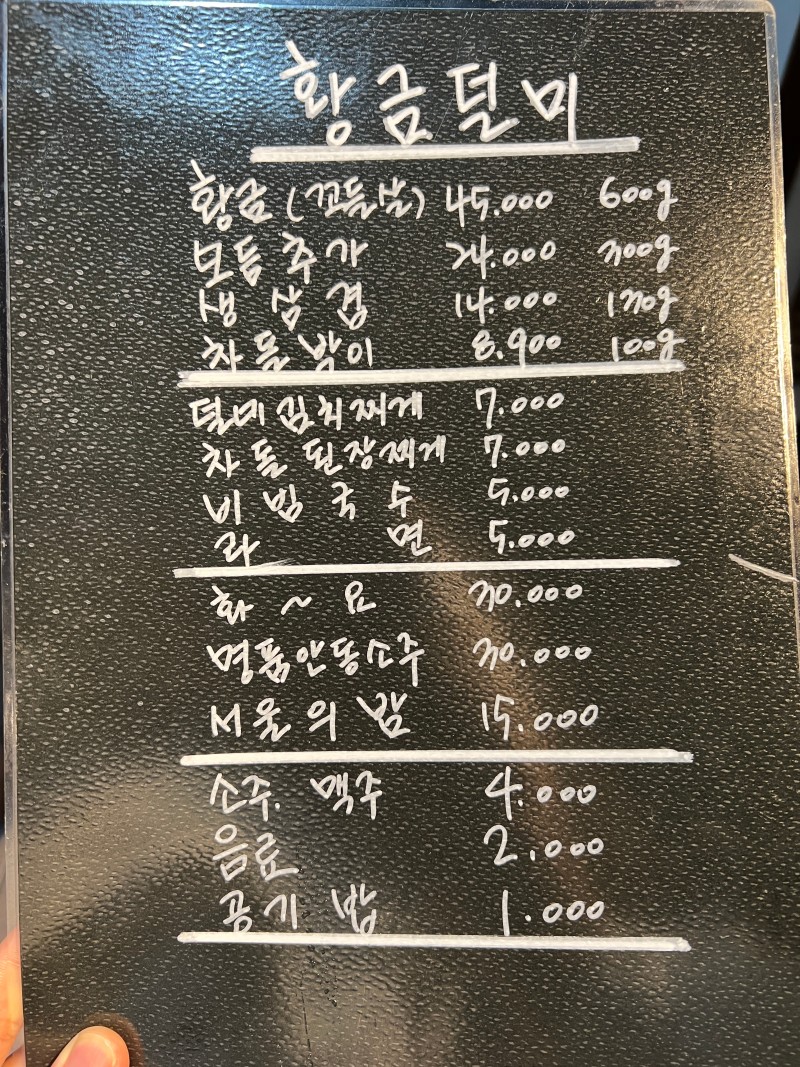 황금덜미
황금(꼬들살) 45.000 600g
모듬추가 24.000 300g
생삼겹 14.000 170g
차돌박이 8.900 100g
덜미김치찌게 7.000
차돌된장찌게 7.000
비빔국수 5.000
라면 5.000
화~요 30.000
명품안동소주 30.000
서울의밤 15.000
소주.맥주 4.000
음료 2.000
공기밥 1.000